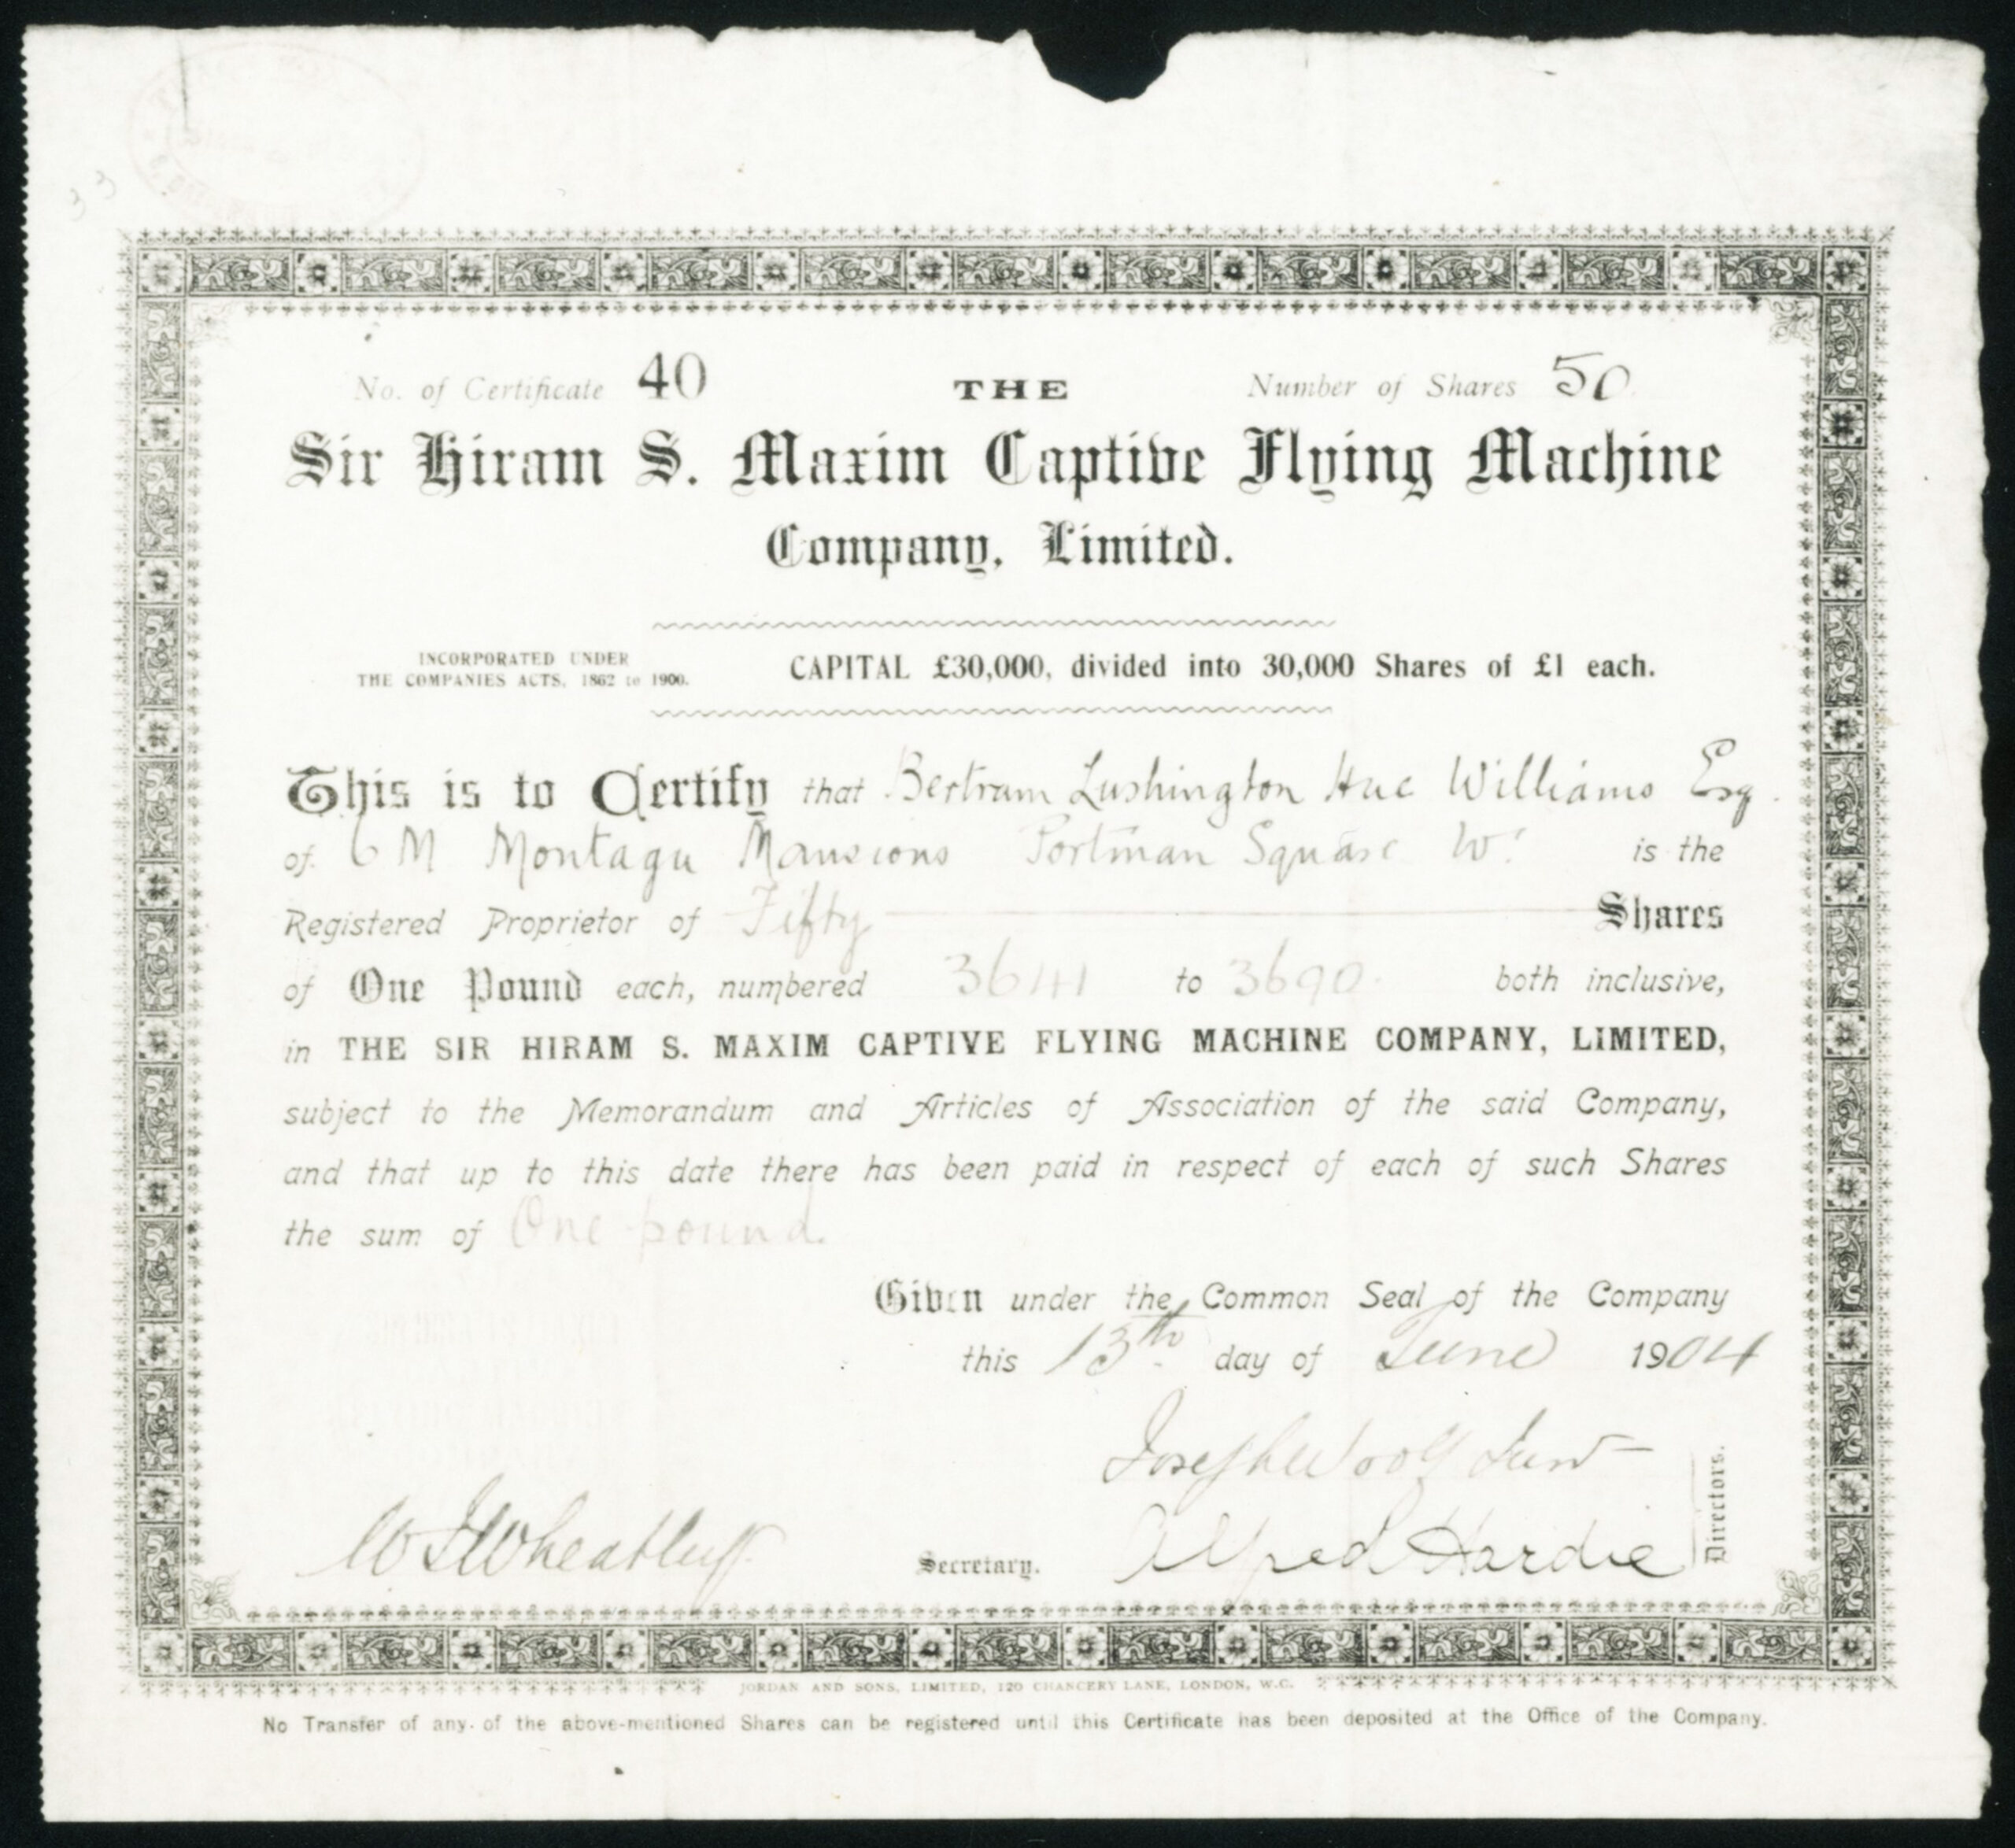 33
No. of Certificate 40 THE Number of Shares 50
Sir Hiram S. Maxim Captive Flying Machine
Company, Limited.
INCORPORATED UNDER
THE COMPANIES ACTS, 1862 to 1900.
CAPITAL £30,000, divided into 30,000 Shares of £1 each.
This is to Certify that Bertram Lushington Hue Williams Esq.
of 6 M Montagu Mansions Portman Square W. is the
Registered Proprietor of Fifty Shares
of One Pound each, numbered 3641 to 3690. both inclusive,
in THE SIR HIRAM S. MAXIM CAPTIVE FLYING MACHINE COMPANY, LIMITED,
subject to the Memorandum and Articles of Association of the said Company,
and that up to this date there has been paid in respect of each of such Shares
the sum of One pound.
Given under the Common Seal of the Company
this 13th day of June 1904
Joseph
W Wheatley Secretary. Alfred Hardie Directors.
JORDAN AND SONS, LIMITED, 120 CHANCERY LANE, LONDON, W.C.
No Transfer of any of the above-mentioned Shares can be registered until this Certificate has been deposited at the Office of the Company.